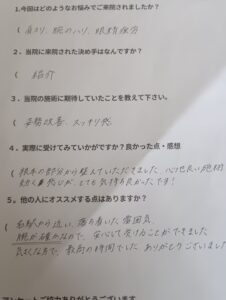 1.今回はどのようなお悩みでご来院されましたか?
( 肩コリ、腕のハリ、眼精疲労
2．当院に来院された決め手はなんですか?
( 紹介
3．当院の施術に期待していたことを教えて下さい。
( 姿勢改善、スッキリ感
4．実際に受けてみていかがですか？良かった点・感想
( 根本の部分から整えていただきました、心地良い施術
とても気持ち良かったです!
5．他の人にオススメする点はありますか?
( 駅から近い、落ち着いた雰囲気、
腕が確かなので、安心して受けることができました
気さくな方で、の時間でした ありがとうございました
アンケートご協力ありがとうございます